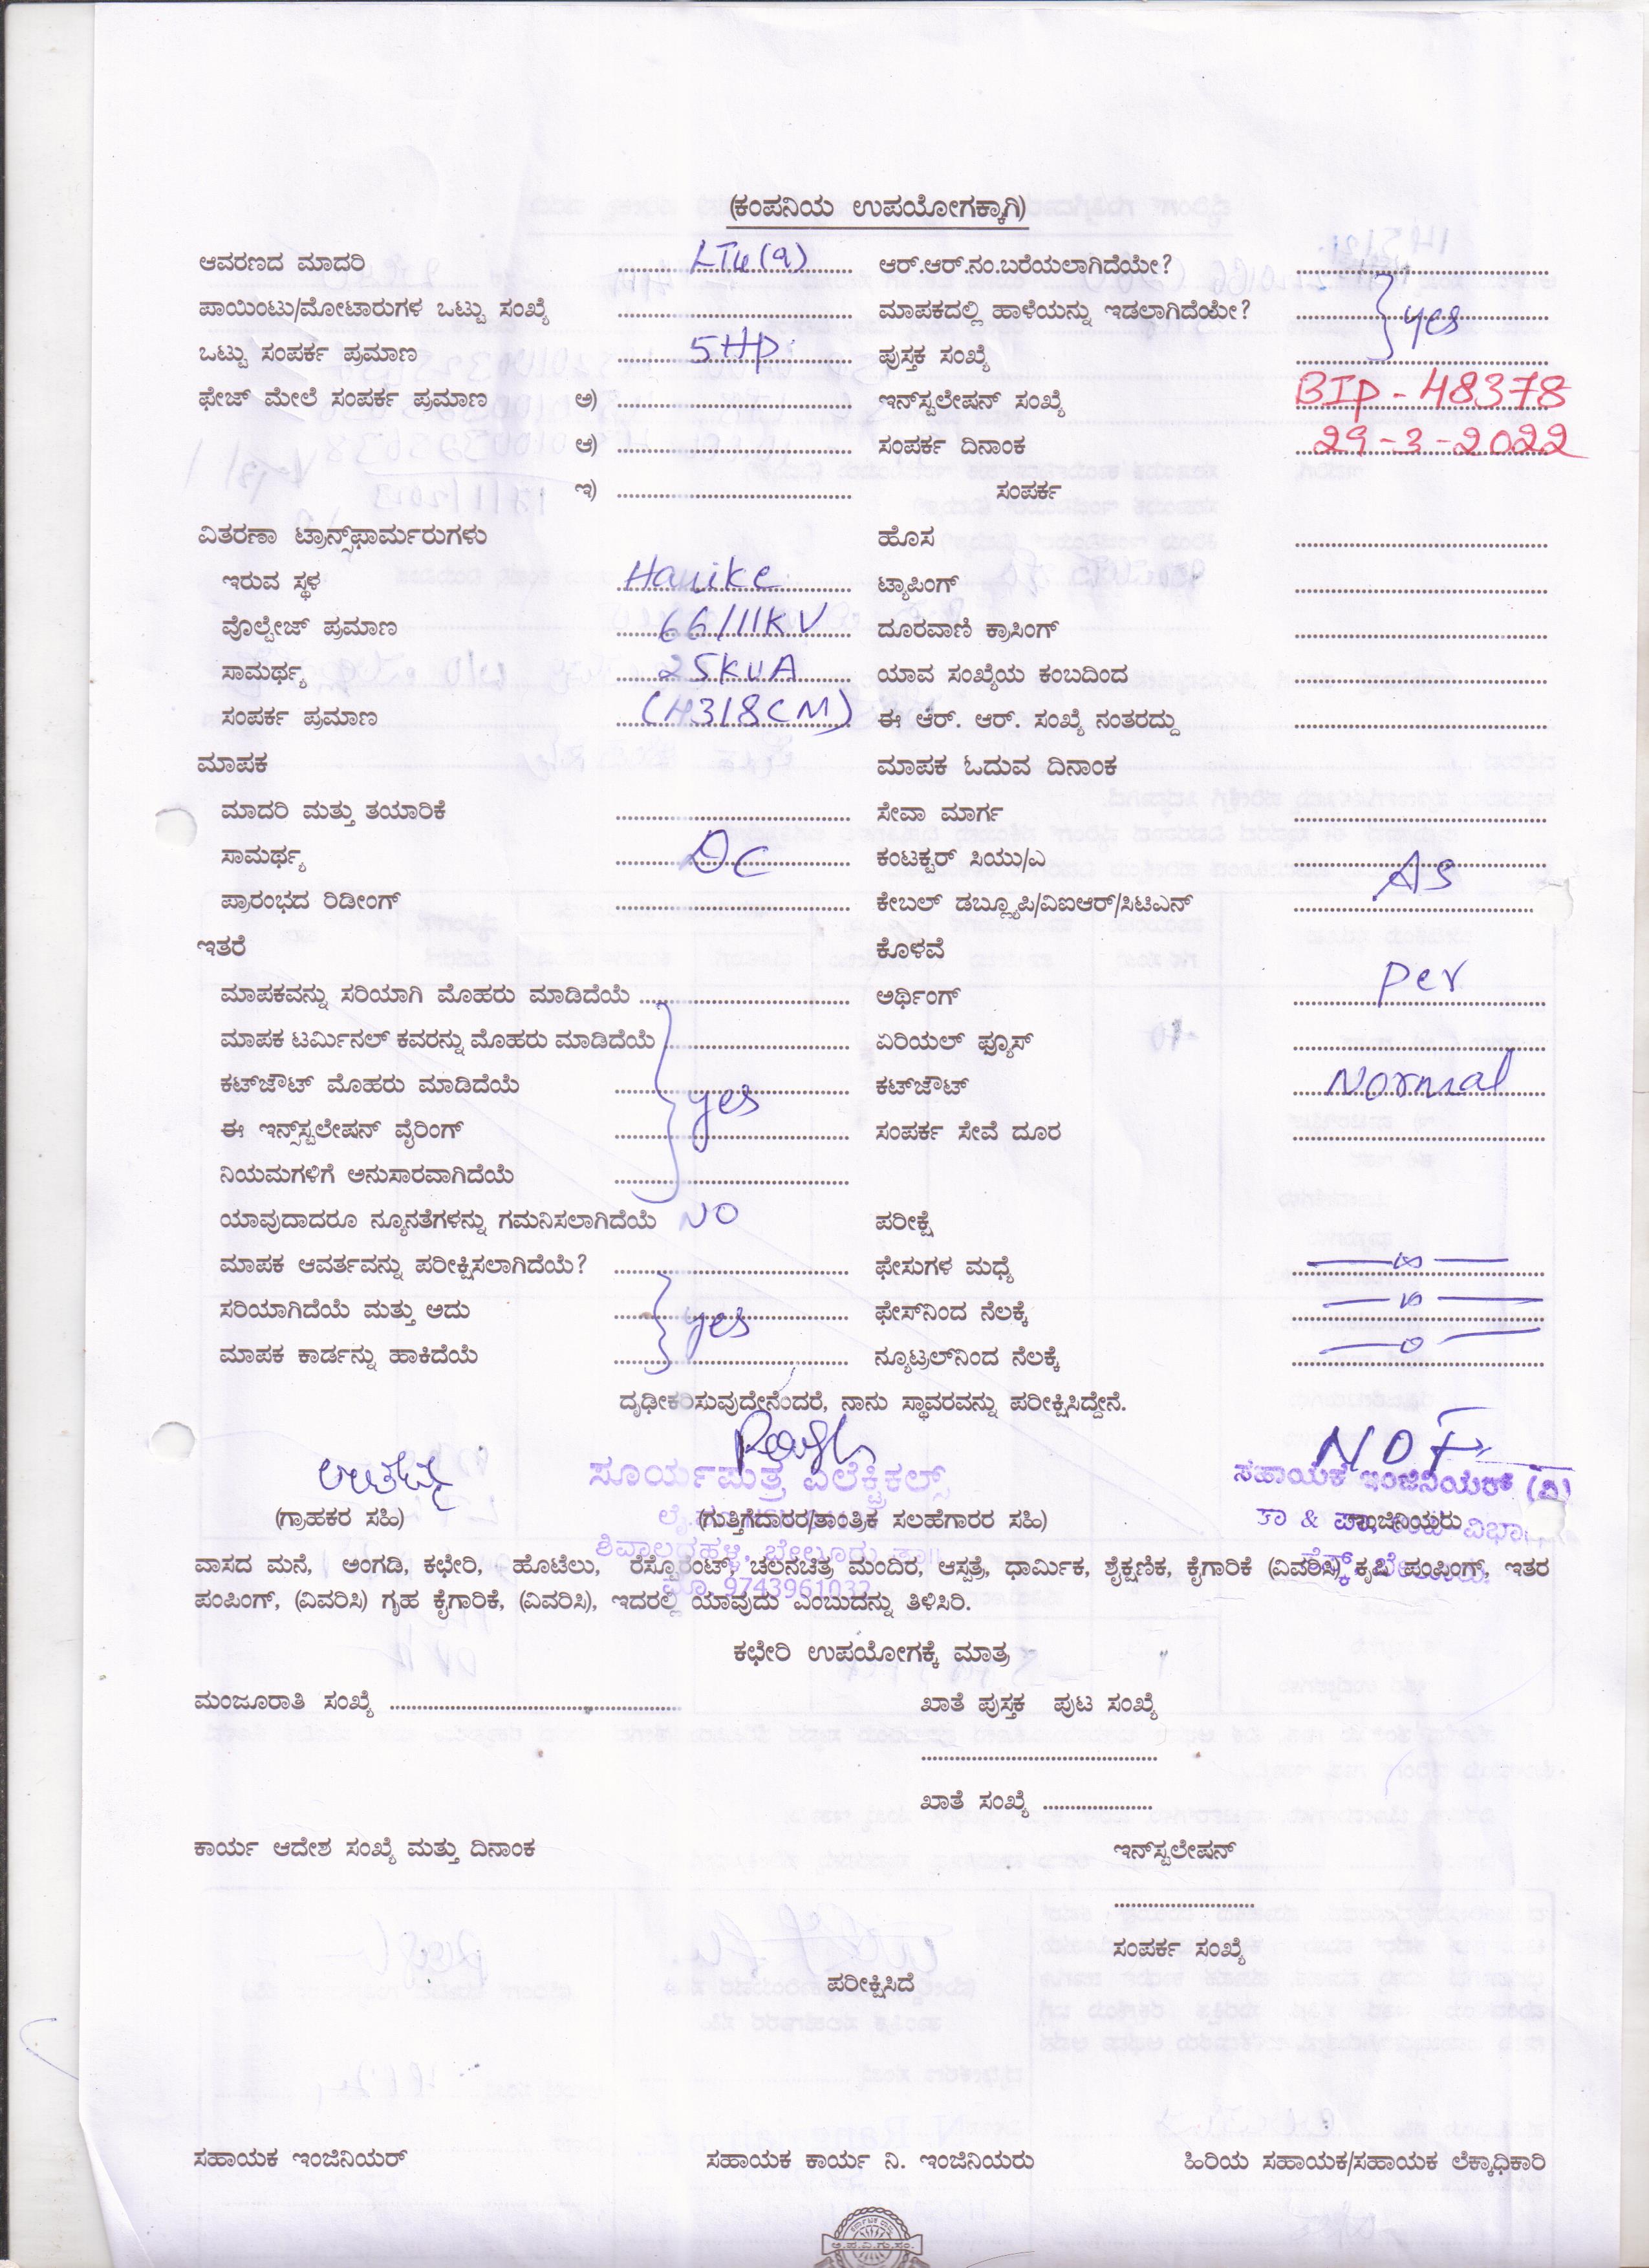 (ಕಂಪನಿಯ ಉಪಯೋಗಕ್ಕಾಗಿ)
ಆವರಣದ ಮಾದರಿ LT4(a) ಆರ್.ಆರ್.ನಂ.ಬರೆಯಲಾಗಿದೆಯೇ?
ಪಾಯಿಂಟು/ಮೋಟಾರುಗಳ ಒಟ್ಟು ಸಂಖ್ಯೆ ಮಾಪಕದಲ್ಲಿ ಹಾಳೆಯನ್ನು ಇಡಲಾಗಿದೆಯೇ? yes
ಒಟ್ಟು ಸಂಪರ್ಕ ಪ್ರಮಾಣ 5HP ಪುಸ್ತಕ ಸಂಖ್ಯೆ
ಫೇಜ್ ಮೇಲೆ ಸಂಪರ್ಕ ಪ್ರಮಾಣ ಅ) ಇನ್‌ಸ್ಟಲೇಷನ್ ಸಂಖ್ಯೆ BIP-48378
ಆ) ಸಂಪರ್ಕ ದಿನಾಂಕ 29-3-2022
ಇ) ಸಂಪರ್ಕ
ವಿತರಣಾ ಟ್ರಾನ್ಸ್‌ಫಾರ್ಮರುಗಳು ಹೊಸ
ಇರುವ ಸ್ಥಳ Hanike ಟ್ಯಾಪಿಂಗ್
ವೊಲ್ಟೇಜ್ ಪ್ರಮಾಣ 66/11KV ದೂರವಾಣಿ ಕ್ರಾಸಿಂಗ್
ಸಾಮರ್ಥ್ಯ 25KVA ಯಾವ ಸಂಖ್ಯೆಯ ಕಂಬದಿಂದ
ಸಂಪರ್ಕ ಪ್ರಮಾಣ (H318CM) ಈ ಆರ್. ಆರ್. ಸಂಖ್ಯೆ ನಂತರದ್ದು
ಮಾಪಕ ಮಾಪಕ ಓದುವ ದಿನಾಂಕ
ಮಾದರಿ ಮತ್ತು ತಯಾರಿಕೆ ಸೇವಾ ಮಾರ್ಗ
ಸಾಮರ್ಥ್ಯ DC ಕಂಟಕ್ಟರ್ ಸಿಯು/ಎ As
ಪ್ರಾರಂಭದ ರಿಡೀಂಗ್ ಕೇಬಲ್ ಡಬ್ಲ್ಯೂಪಿ/ವಿಐಆರ್/ಸಿಟಿಎನ್
ಇತರೆ ಕೊಳವೆ
ಮಾಪಕವನ್ನು ಸರಿಯಾಗಿ ಮೊಹರು ಮಾಡಿದೆಯೆ ಅರ್ಥಿಂಗ್ per
ಮಾಪಕ ಟರ್ಮಿನಲ್ ಕವರನ್ನು ಮೊಹರು ಮಾಡಿದೆಯೆ ಏರಿಯಲ್ ಫ್ಯೂಸ್
ಕಟ್‌ಔಟ್ ಮೊಹರು ಮಾಡಿದೆಯೆ yes ಕಟ್‌ಔಟ್ Normal
ಈ ಇನ್ಸ್‌ಸ್ಟಲೇಷನ್ ವೈರಿಂಗ್ ಸಂಪರ್ಕ ಸೇವೆ ದೂರ
ನಿಯಮಗಳಿಗೆ ಅನುಸಾರವಾಗಿದೆಯೆ
ಯಾವುದಾದರೂ ನ್ಯೂನತೆಗಳನ್ನು ಗಮನಿಸಲಾಗಿದೆಯೆ NO ಪರೀಕ್ಷೆ
ಮಾಪಕ ಆವರ್ತವನ್ನು ಪರೀಕ್ಷಿಸಲಾಗಿದೆಯೆ? ಫೇಸುಗಳ ಮಧ್ಯೆ
ಸರಿಯಾಗಿದೆಯೆ ಮತ್ತು ಅದು yes ಫೇಸ್‌ನಿಂದ ನೆಲಕ್ಕೆ
ಮಾಪಕ ಕಾರ್ಡನ್ನು ಹಾಕಿದೆಯೆ ನ್ಯೂಟ್ರಲ್‌ನಿಂದ ನೆಲಕ್ಕೆ
ದೃಢೀಕರಿಸುವುದೇನೆಂದರೆ, ನಾನು ಸ್ಥಾವರವನ್ನು ಪರೀಕ್ಷಿಸಿದ್ದೇನೆ.
ಸೂರ್ಯಪುತ್ರ ಎಲೆಕ್ಟ್ರಿಕಲ್ಸ್ ಸಹಾಯಕ ಇಂಜಿನಿಯರ್ (ವಿ)
(ಗ್ರಾಹಕರ ಸಹಿ) (ಗುತ್ತಿಗೆದಾರರ/ತಾಂತ್ರಿಕ ಸಲಹೆಗಾರರ ಸಹಿ) ಇಂಜಿನಿಯರು
ಶಿವಾಲದಹಳ್ಳಿ, ಬೇಲೂರು ತಾ||
ವಾಸದ ಮನೆ, ಅಂಗಡಿ, ಕಛೇರಿ, ಹೊಟೆಲು, ರೆಸ್ಟೊರೆಂಟ್, ಚಲನಚಿತ್ರ ಮಂದಿರ, ಆಸ್ಪತ್ರೆ, ಧಾರ್ಮಿಕ, ಶೈಕ್ಷಣಿಕ, ಕೈಗಾರಿಕೆ (ವಿವರಿಸಿ) ಕೃಷಿ ಪಂಪಿಂಗ್, ಇತರ
ಮೊ. 9743961032
ಪಂಪಿಂಗ್, (ವಿವರಿಸಿ) ಗೃಹ ಕೈಗಾರಿಕೆ, (ವಿವರಿಸಿ), ಇದರಲ್ಲಿ ಯಾವುದು ಎಂಬುದನ್ನು ತಿಳಿಸಿರಿ.
ಕಛೇರಿ ಉಪಯೋಗಕ್ಕೆ ಮಾತ್ರ
ಮಂಜೂರಾತಿ ಸಂಖ್ಯೆ ಖಾತೆ ಪುಸ್ತಕ ಪುಟ ಸಂಖ್ಯೆ
ಖಾತೆ ಸಂಖ್ಯೆ
ಕಾರ್ಯ ಆದೇಶ ಸಂಖ್ಯೆ ಮತ್ತು ದಿನಾಂಕ ಇನ್‌ಸ್ಟಲೇಷನ್
ಸಂಪರ್ಕ ಸಂಖ್ಯೆ
ಪರೀಕ್ಷಿಸಿದೆ
ಸಹಾಯಕ ಇಂಜಿನಿಯರ್ ಸಹಾಯಕ ಕಾರ್ಯ ನಿ. ಇಂಜಿನಿಯರು ಹಿರಿಯ ಸಹಾಯಕ/ಸಹಾಯಕ ಲೆಕ್ಕಾಧಿಕಾರಿ